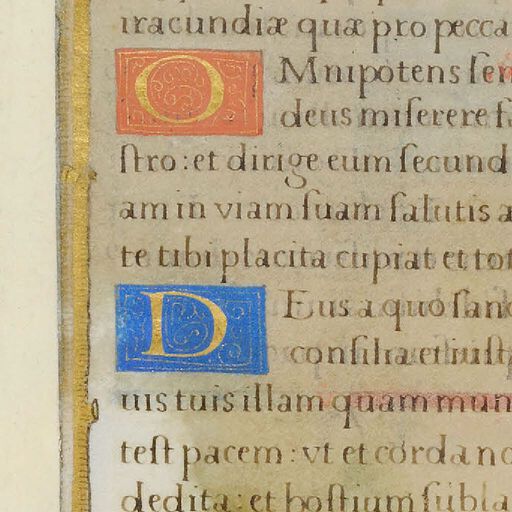 iracundiæ quæ pro pecca
OMnipotens ſem
deus miſerere fa
ſtro: et dirige eum ſecund
am in viam ſuam ſalutis a
te tibi placita cupiat et tot
DEus a quo ſanc
conſilia et iuſt
uis tuis illam quam mun
teſt pacem: vt et corda no
dedita: et hoſtium ſubla